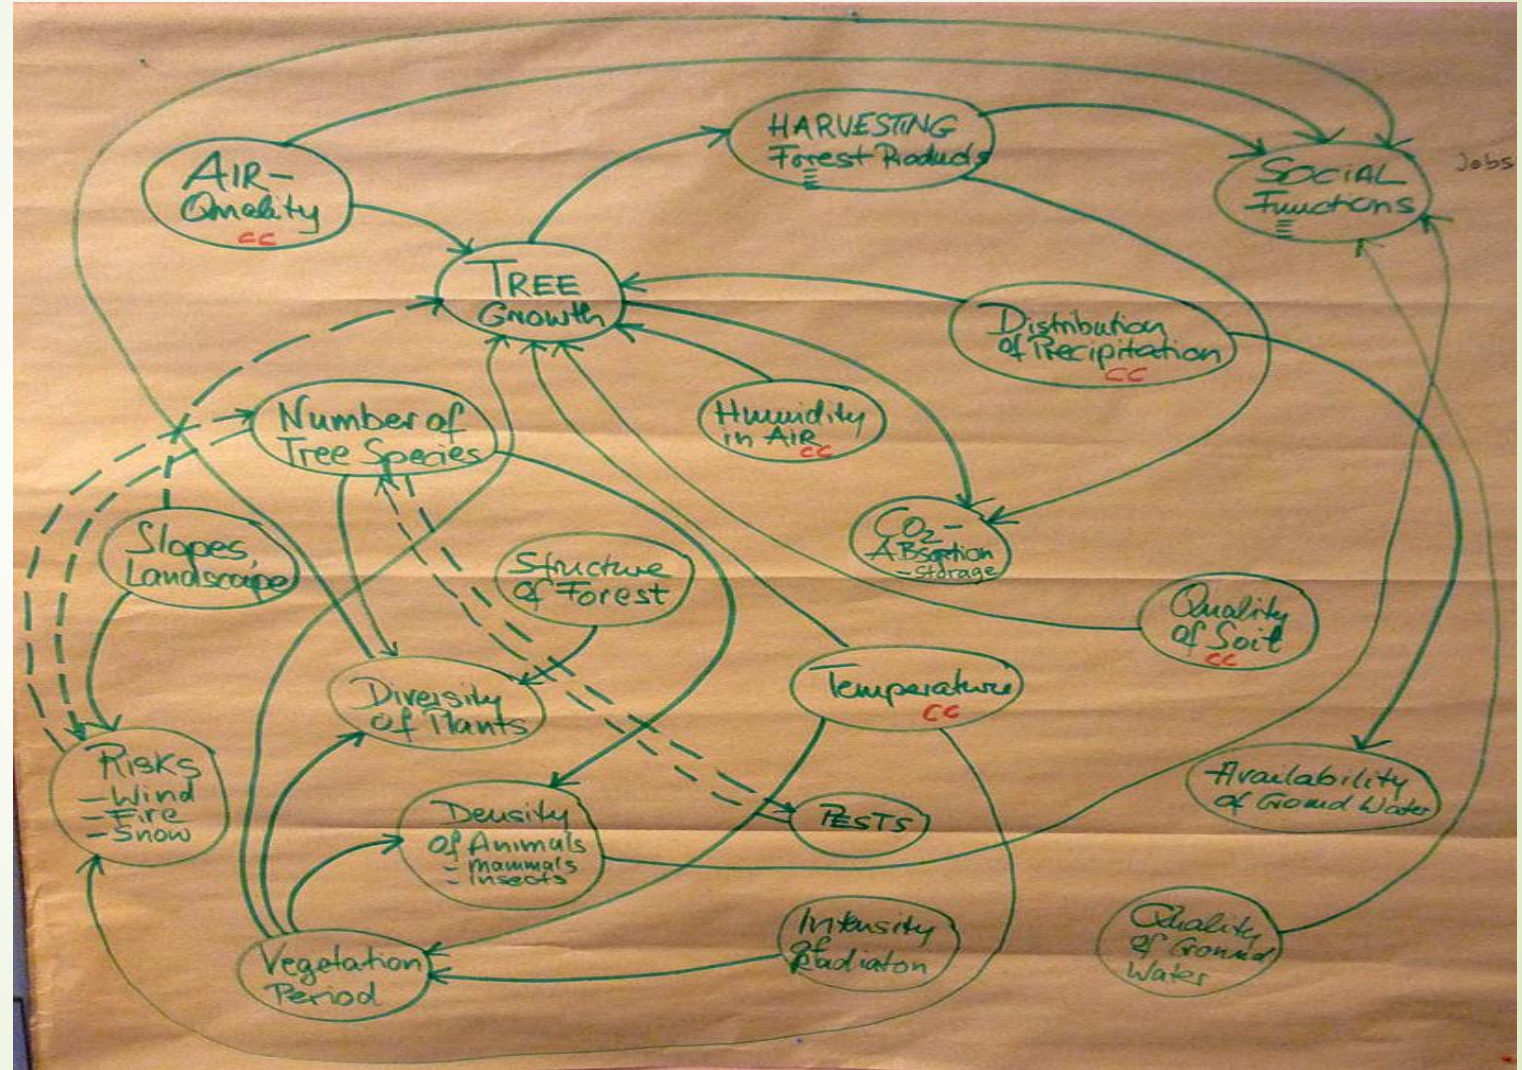 AIR-
Quality
CC
HARVESTING
Forest Products
SOCIAL
Functions
Jobs
TREE
Growth
Distribution
of Precipitation
CC
Number of
Tree Species
Humidity
in AIR
CC
Slopes,
Landscape
Structure
of Forest
CO2-
ABsorption
-storage
Quality
of Soil
CC
Diversity
of Plants
Temperature
CC
RISKS
- Wind
- Fire
- Snow
Density
of Animals
- mammals
- insects
PESTS
Availability
of Ground Water
Vegetation
Period
Intensity
of
Radiaton
Quality
of Ground
Water